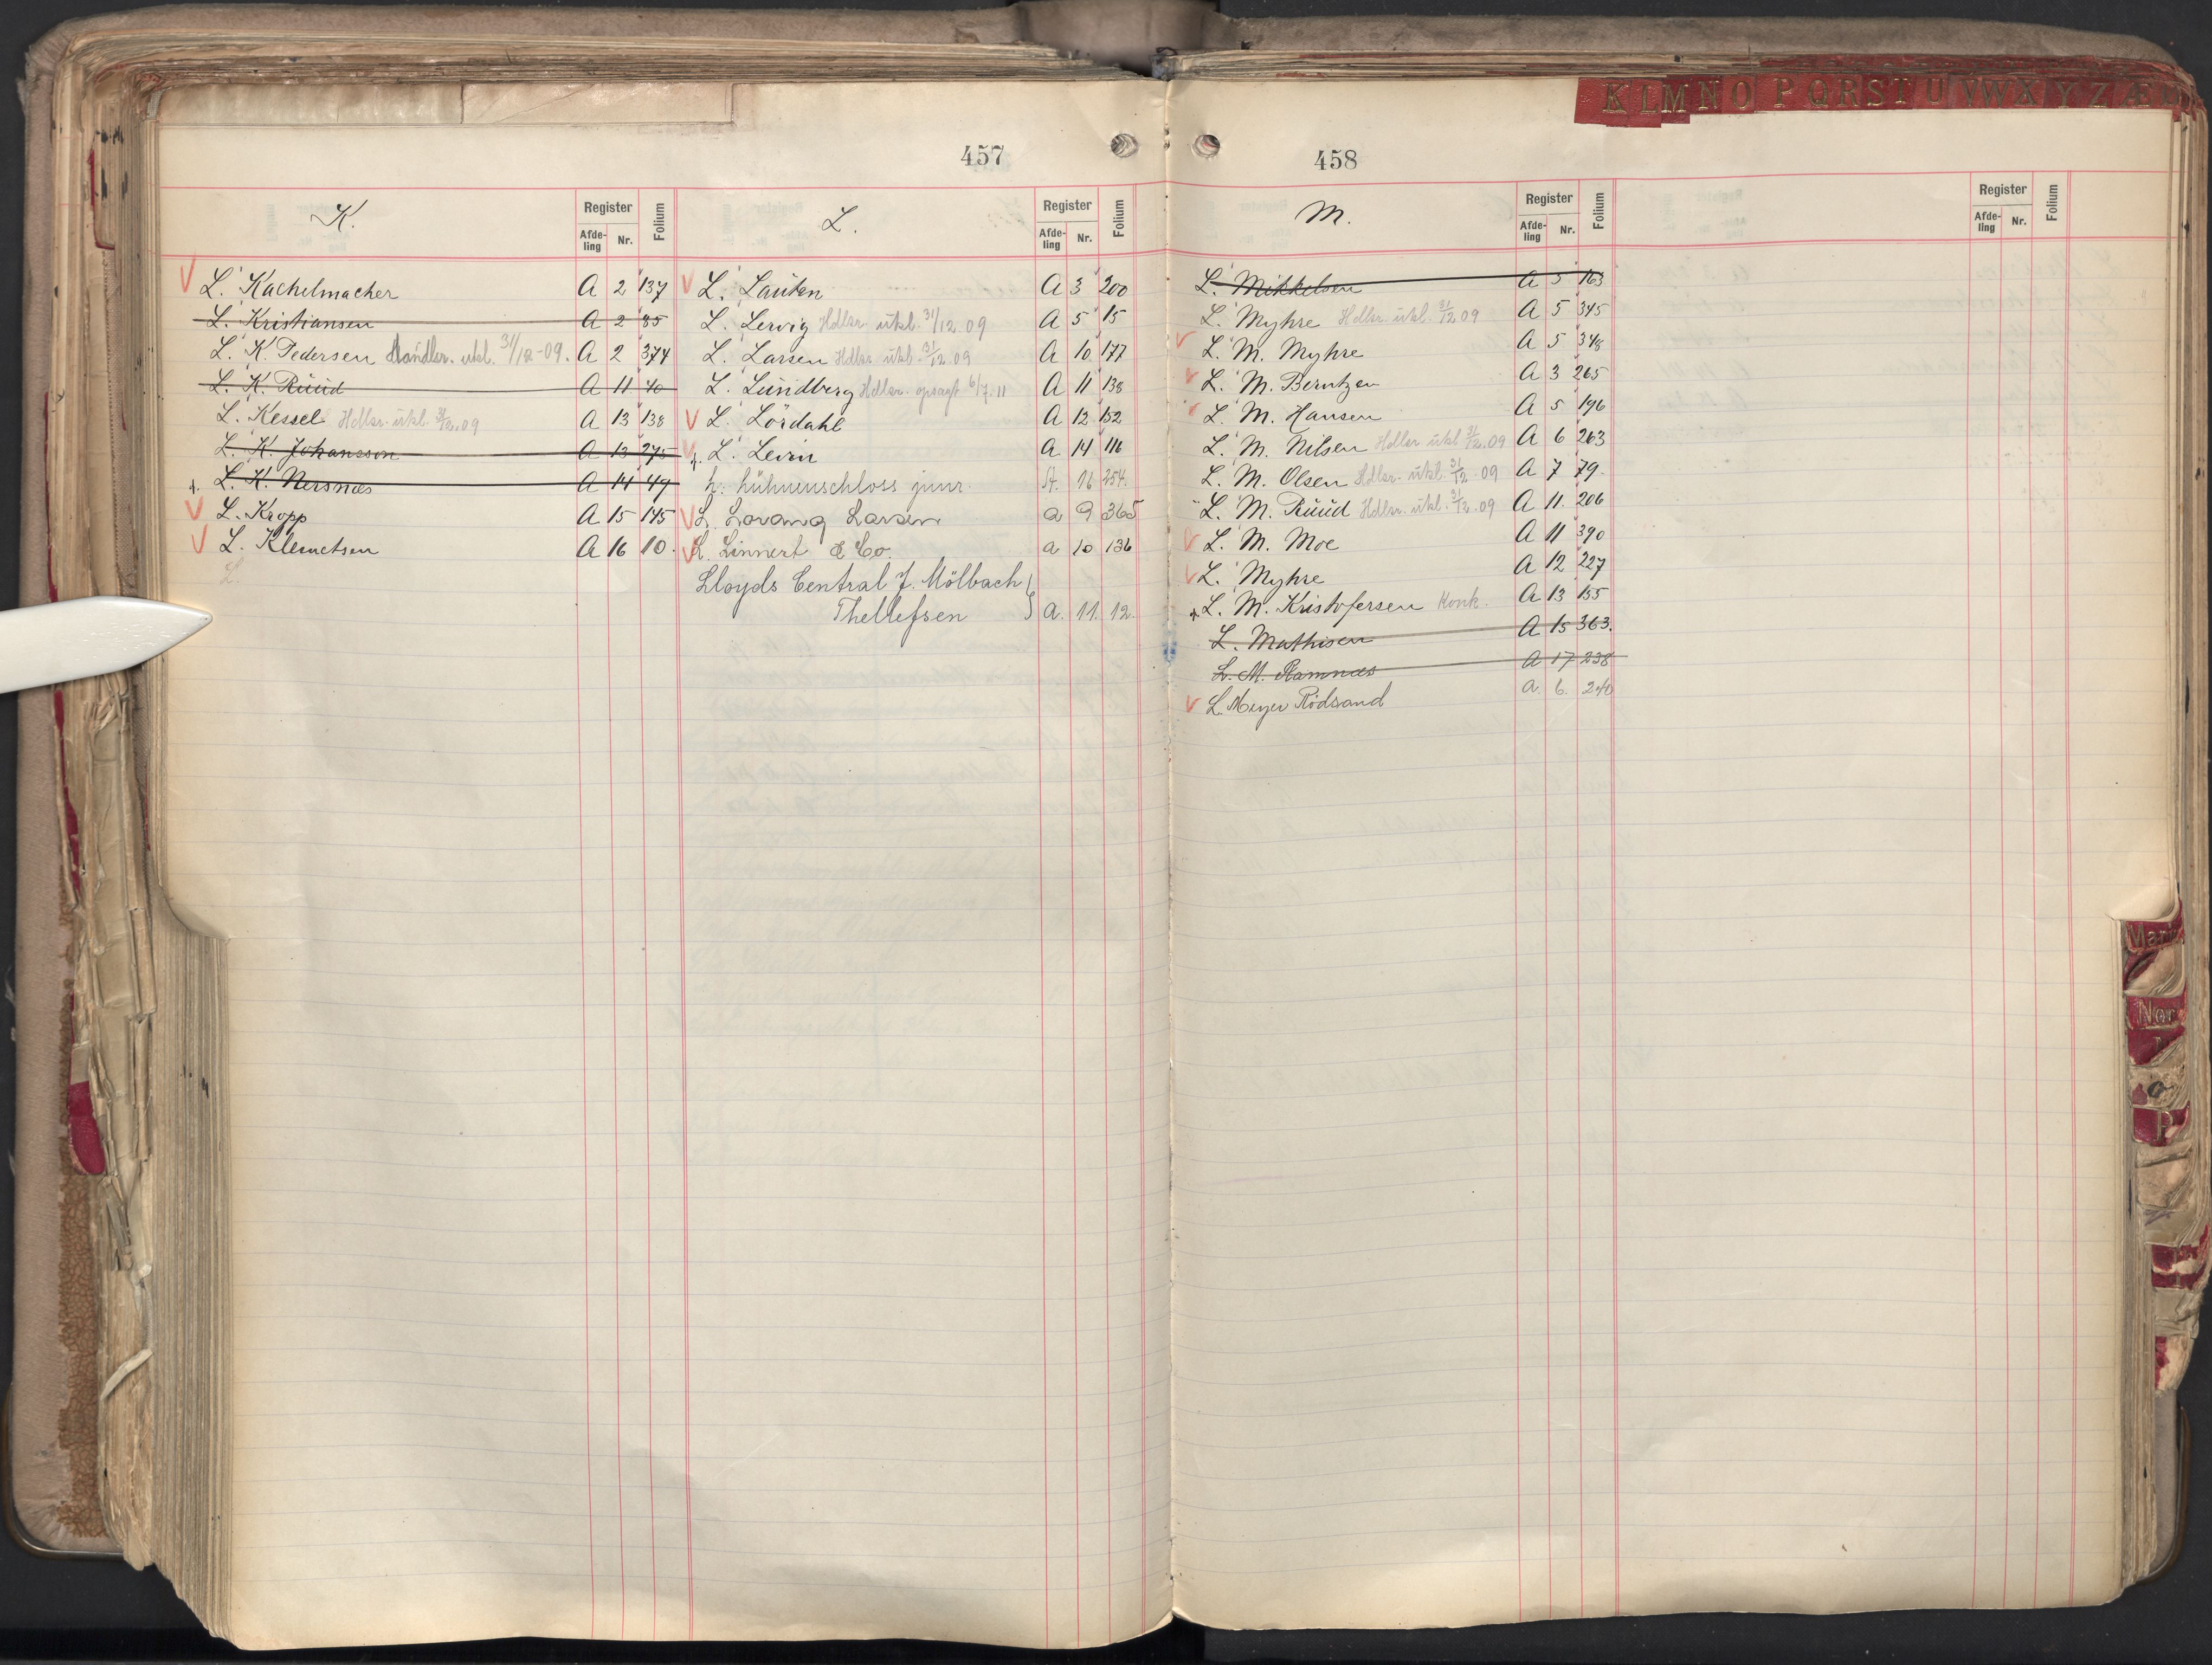 K L M N O P Q R S T U VW X Y Z Æ
457
K.
Register
Afde-
ling
Nr.
Folium
L. Kachelmacher A 2 137
L. Kristiansen A 2 85
L. K. Pedersen Handlsr. utsl. 31/12-09. A 2 374
L. K. Ruud A 11 40
L. Kessel Hdlsr. utsl. 31/12.09 A 13 138
L. K. Johansson A 13 275
L. K. Nersnæs A 14 49
L. Kropp A 15 145
L. Klemetsen A 16 10.
L.
L.
Register
Afde-
ling
Nr.
Folium
L. Lauten A 3 200
L. Lervig Hdlsr. utsl. 31/12 09 A 5 15
L. Larsen Hdlsr. utsl. 31/12 09 A 10 177
L. Lundberg Hdlsr. opsagt 6/7.11 A 11 138
L. Lördahl A 12 152
L. Levin A 14 116
L. Lühnenschloss junr. A. 16 254.
L. Lorang Larsen a 9 365
L. Linnert & Co. a 10 136
Lloyds Central J. Mölbach
Thellefsen a. 11. 12.
458
M.
Register
Afde-
ling
Nr.
Folium
L. Mikkelsen A 5 163
L. Myhre Hdlsr. utsl. 31/12 09 A 5 345
L. M. Myhre A 5 348
L. M. Berntzen A 3 265
L. M. Hansen A 5 196
L. M. Nilsen Hdlsr. utsl. 31/12.09 A 6 263
L. M. Olsen Hdlsr. utsl. 31/12 09 A 7 79.
L. M. Ruud Hdlsr. utsl. 31/12.09 A 11. 206
L. M. Moe A 11 390
L. Myhre A 12 227
L. M. Kristofersen Konk. A 13 155
L. Mathisen A 15 363.
L. M. Ramnæs A 17 238
L. Meyer Rödsand a. 6. 240
Register
Afde-
ling
Nr.
Folium
Nor
P